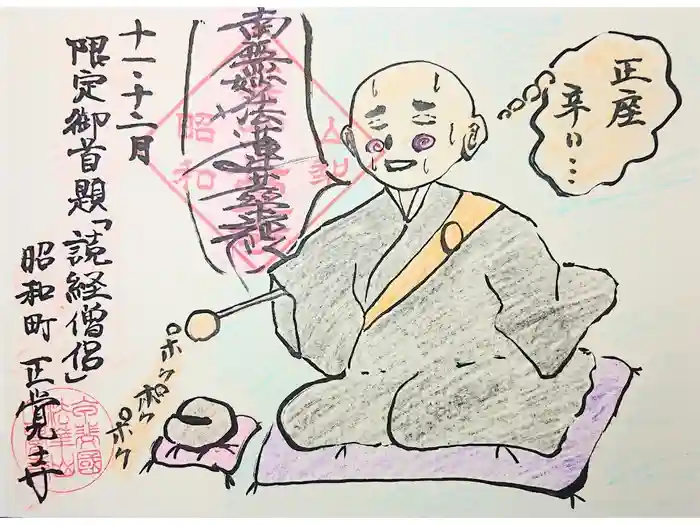 十一・十二月
限定御首題「読経僧侶」
昭和町 正覚寺
南無妙法蓮華経
正座
辛い…
ポク
ポク
ポク
昭和